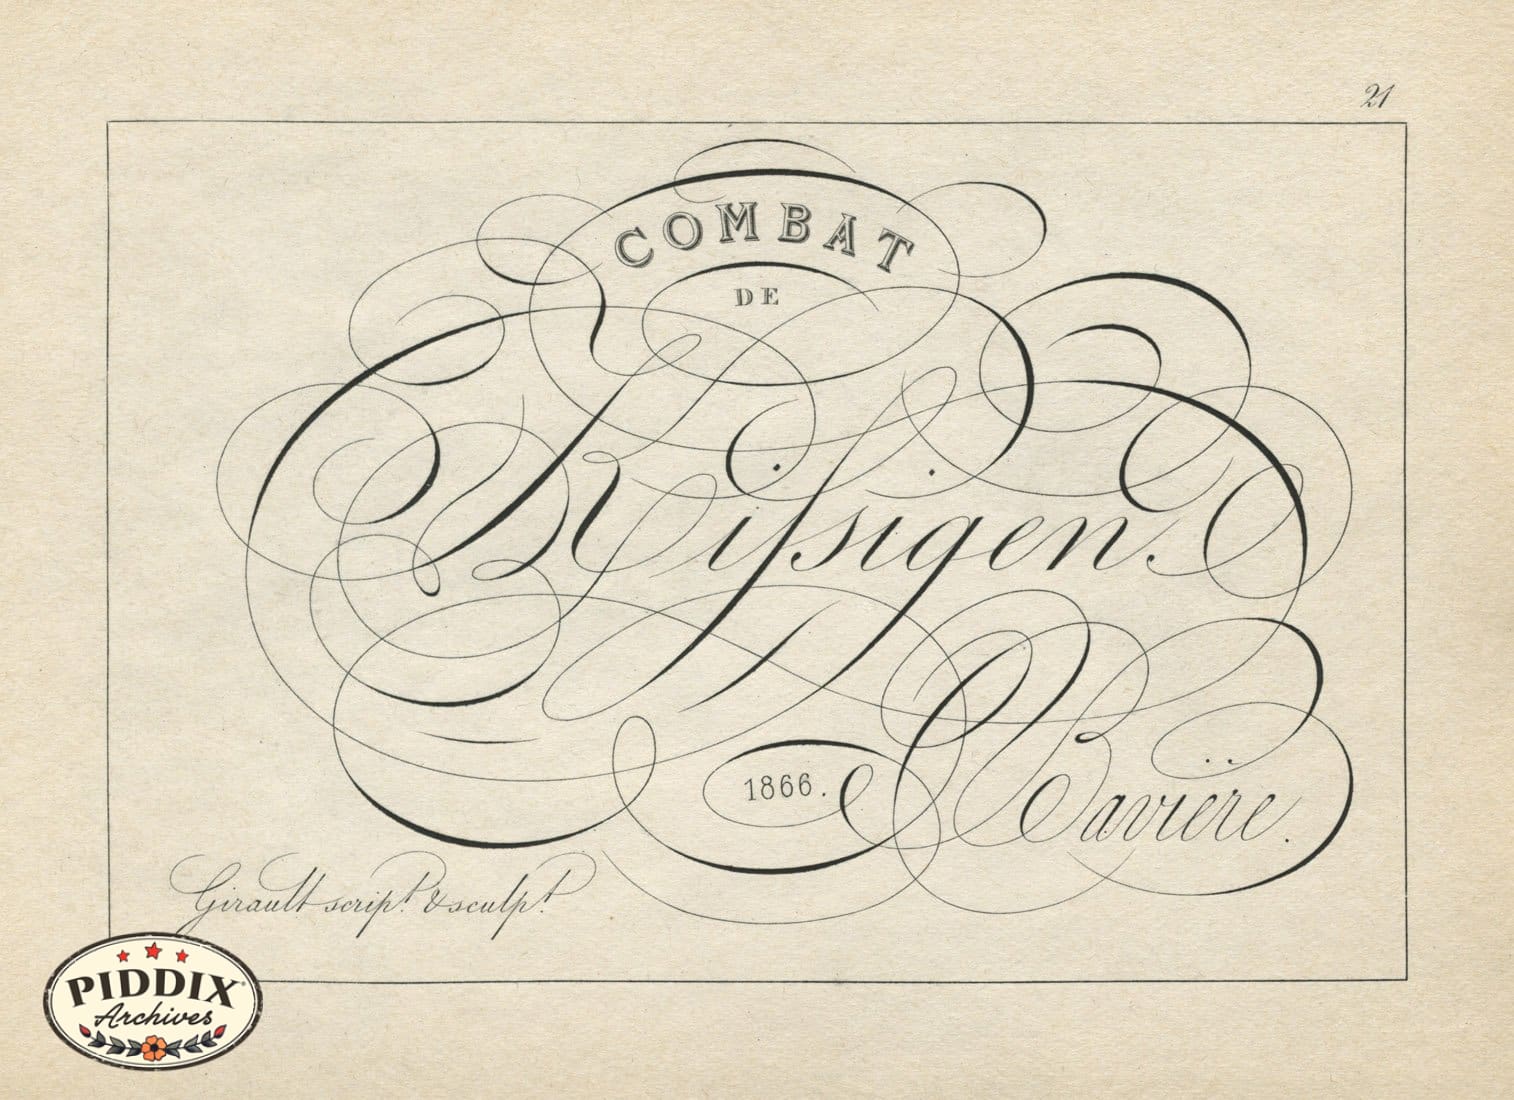 21
COMBAT
DE
Kiſsigen.
1866.
Bavière.
Girault script. & sculpt.
PIDDIX
Archives